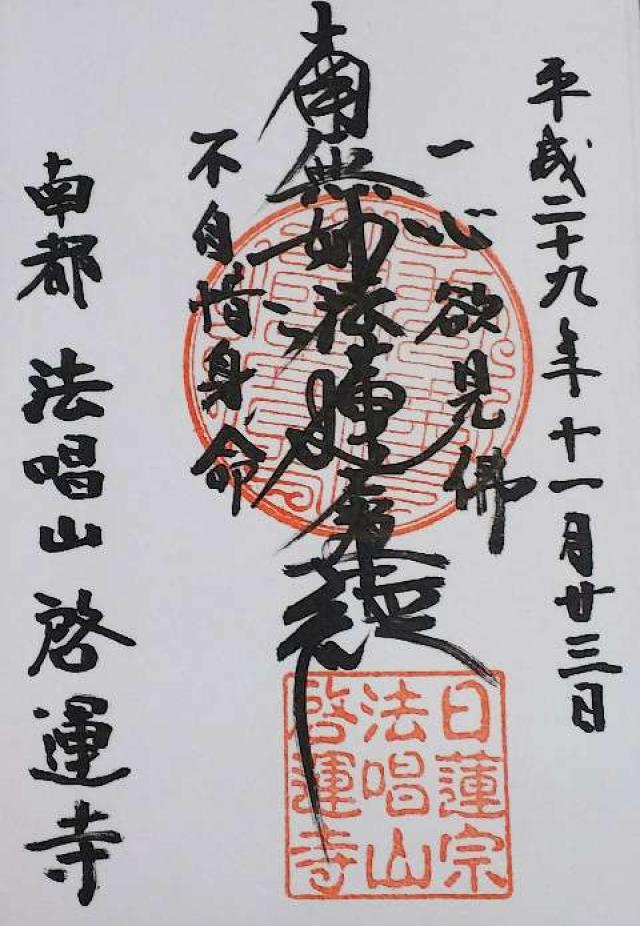 平成二十九年十一月廿三日
一心欲見佛
南無妙法蓮華経
不自惜身命
南都 法唱山 啓運寺
日蓮宗
法唱山
啓運寺